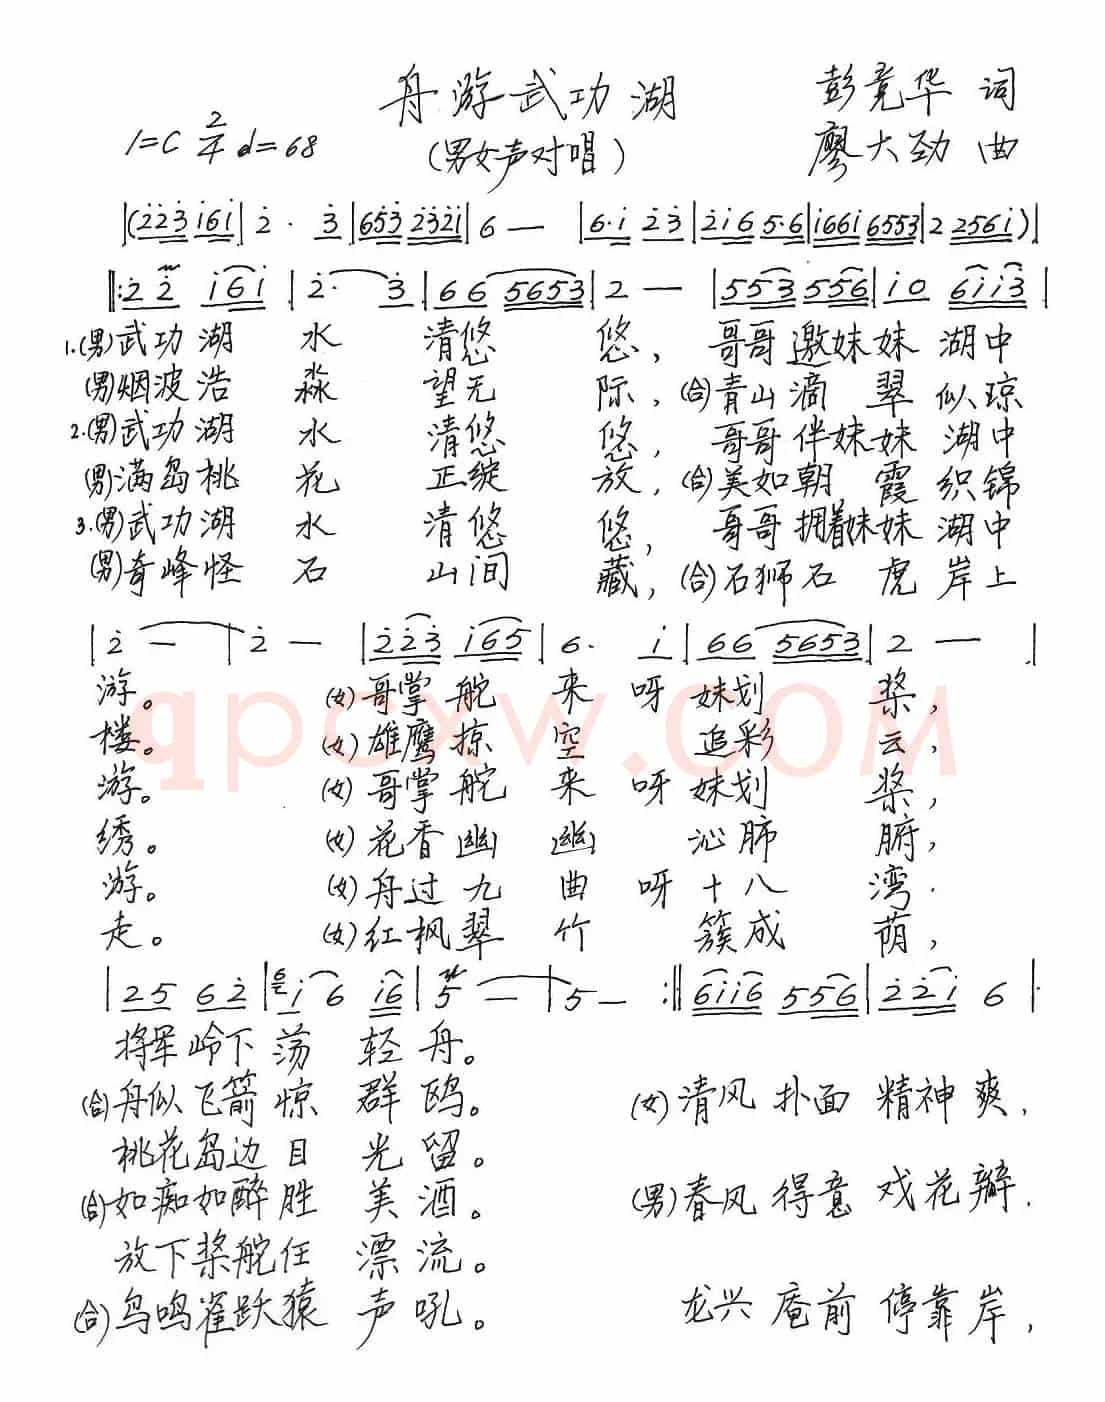 舟游武功湖
彭竟华 词
1=C 2/4 d=68
(男女声对唱)
廖大劲 曲
|(2̇2̇3̇ i6i|2̇· 3̇|653̇ 2̇3̇2̇i|6 —|6·i 2̇3̇|2̇i6 5·6|i66i 6553|2 2561)|
‖:2̇2̇ i6i|2̇· 3̇|66 5653|2 —|553 556|i0 6ii3̇|
1.(男)武功湖 水 清悠 悠, 哥哥邀妹妹 湖中
(男)烟波浩 淼 望无 际,(合)青山滴 翠 似琼
2.(男)武功湖 水 清悠 悠, 哥哥伴妹妹 湖中
(男)满岛桃 花 正绽 放,(合)美如朝 霞 织锦
3.(男)武功湖 水 清悠 悠, 哥哥拥着妹妹 湖中
(男)奇峰怪 石 山间 藏,(合)石狮石 虎 岸上
|2̇ —|2̇ —|2̇2̇3̇ i65|6· i|66 5653|2 —|
游。 (女)哥掌舵 来 呀 妹划 桨,
楼。 (女)雄鹰掠 空 追彩 云,
游。 (女)哥掌舵 来 呀 妹划 桨,
绣。 (女)花香幽 幽 沁肺 腑,
游。 (女)舟过九 曲 呀 十八 湾.
走。 (女)红枫翠 竹 簇成 荫,
|25 62̇|6 i6 i6|5 —|5 —:‖6ii6 556|2̇2̇i 6|
将军岭下荡 轻舟。
(合)舟似飞箭惊 群鸥。 (女)清风 扑面 精神爽,
桃花岛边目 光留。
(合)如痴如醉胜 美酒。 (男)春风 得意 戏花瓣.
放下桨舵任 漂流。
(合)鸟鸣雀跃猿 声吼。 龙兴 庵前 停靠岸,
qpcxw.com